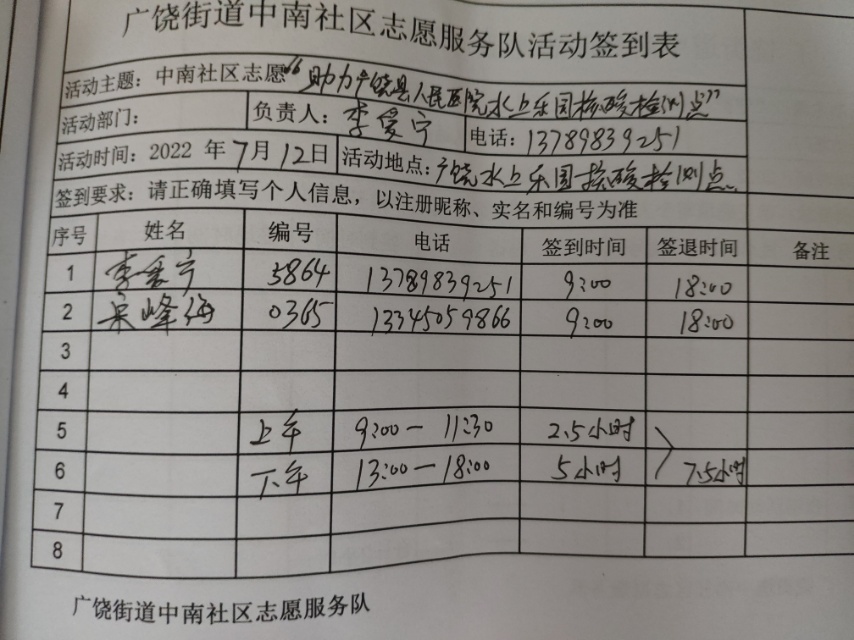 广饶街道中南社区志愿服务队活动签到表
活动主题：中南社区志愿“助力广饶县人民医院水上乐园核酸检测点”
活动部门： 负责人：李爱宁 电话：13789839251
活动时间：2022 年7月12日 活动地点：广饶水上乐园核酸检测点。
签到要求：请正确填写个人信息，以注册昵称、实名和编号为准
序号 姓名 编号 电话 签到时间 签退时间 备注
1 李爱宁 3864 13789839251 9:00 18:00
2 峰海 0365 13345059866 9:00 18:00
3
4
5 上午 9:00－11:30 2.5小时
6 下午 13:00－18:00 5小时 7.5小时
7
8
广饶街道中南社区志愿服务队